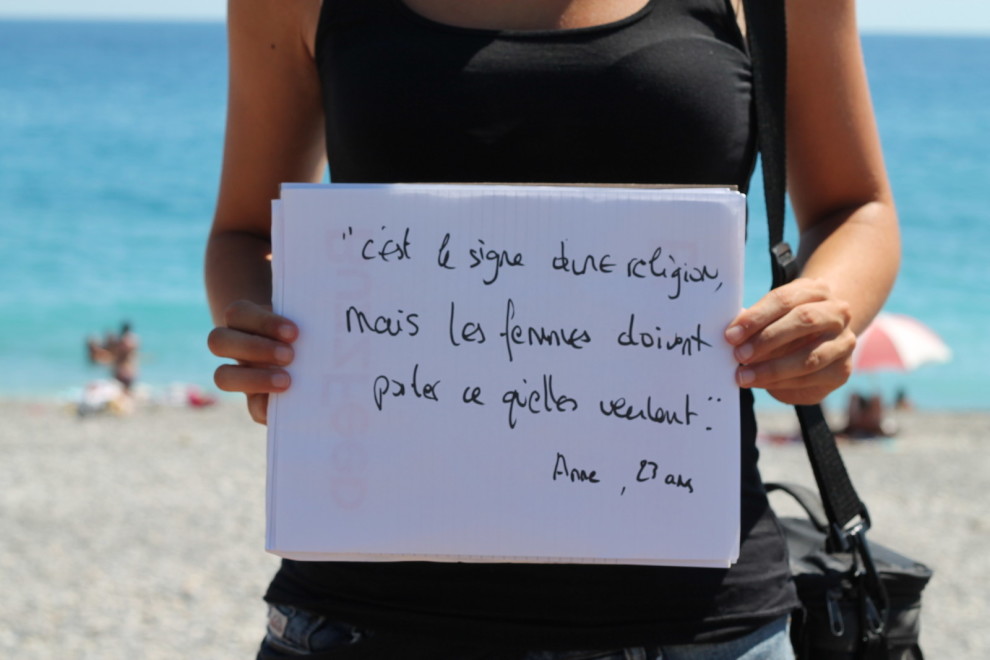 "c'est le signe d'une religion,
mais les femmes doivent
porter ce qu'elles veulent".
Anne, 23 ans